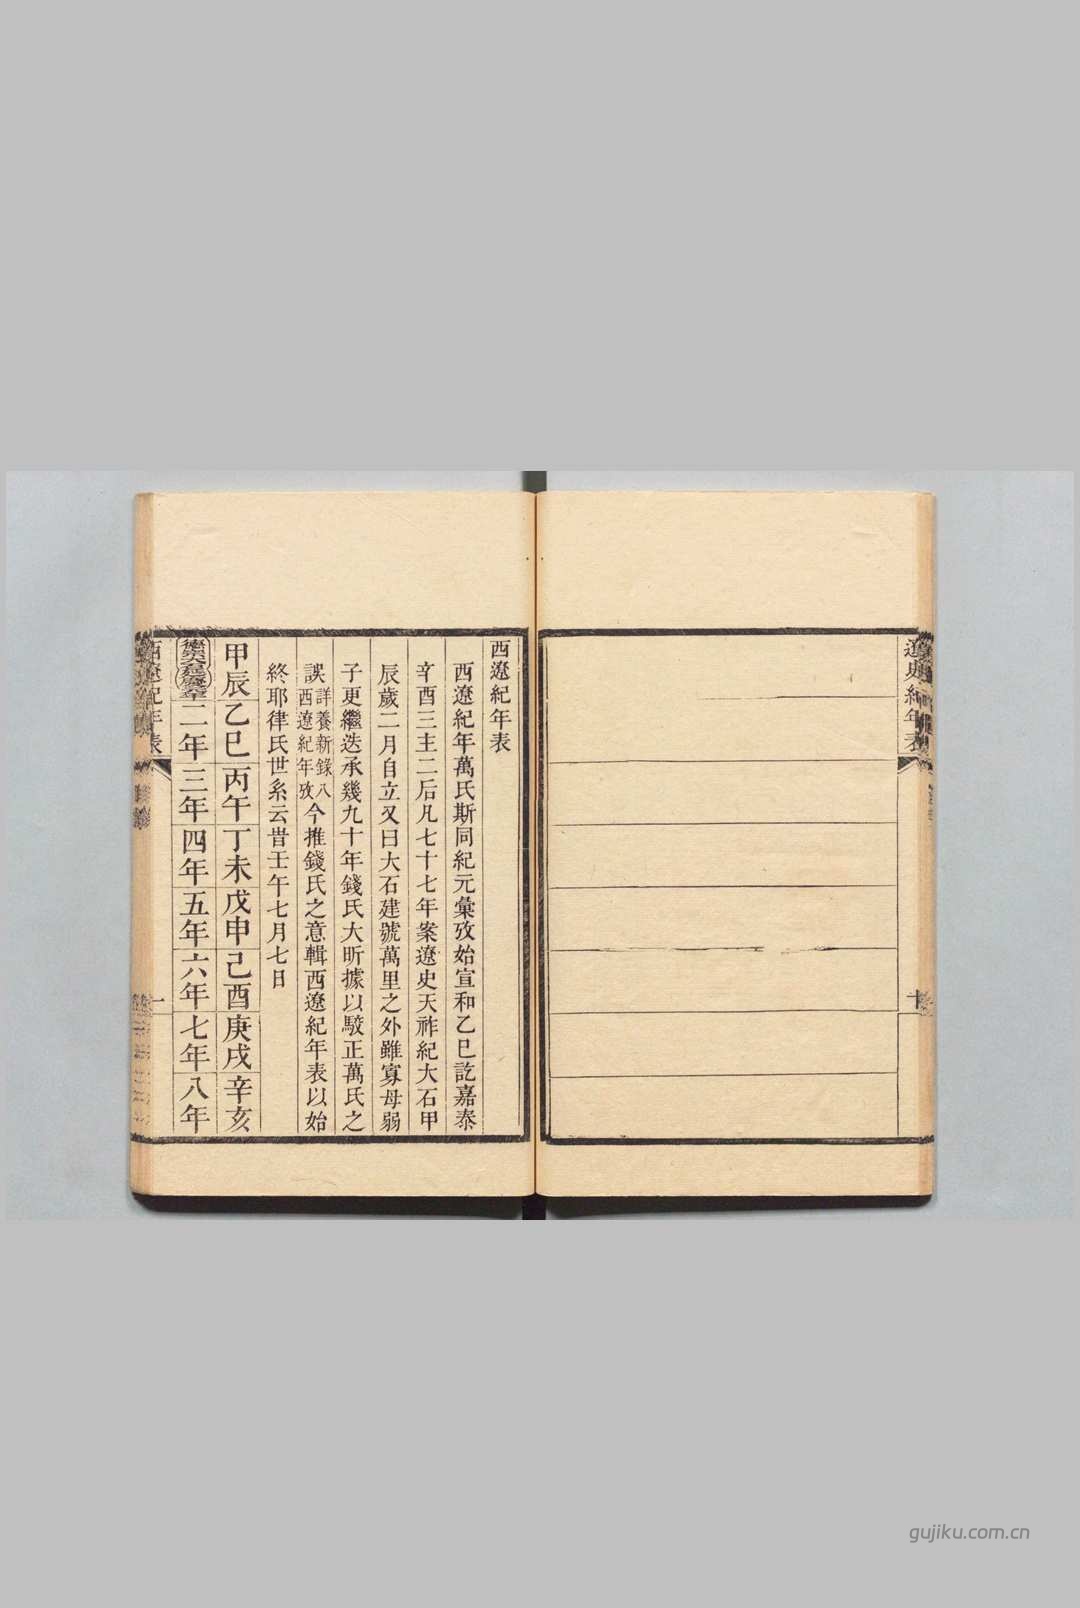 遼史紀年表
十
西遼紀年表
西遼紀年萬氏斯同紀元彙攷始宣和乙巳訖嘉泰
辛酉三主二后凡七十七年案遼史天祚紀大石甲
辰歲二月自立又曰大石建號萬里之外雖寡母弱
子更繼迭承幾九十年錢氏大昕據以駮正萬氏之
誤詳養新錄八西遼紀年攷今推錢氏之意輯西遼紀年表以始
終耶律氏世系云昔壬午七月七日
甲辰乙巳丙午丁未戊申己酉庚戌辛亥
德宗大石延慶二年三年四年五年六年七年八年
西遼紀年表
一
gujiku.com.cn